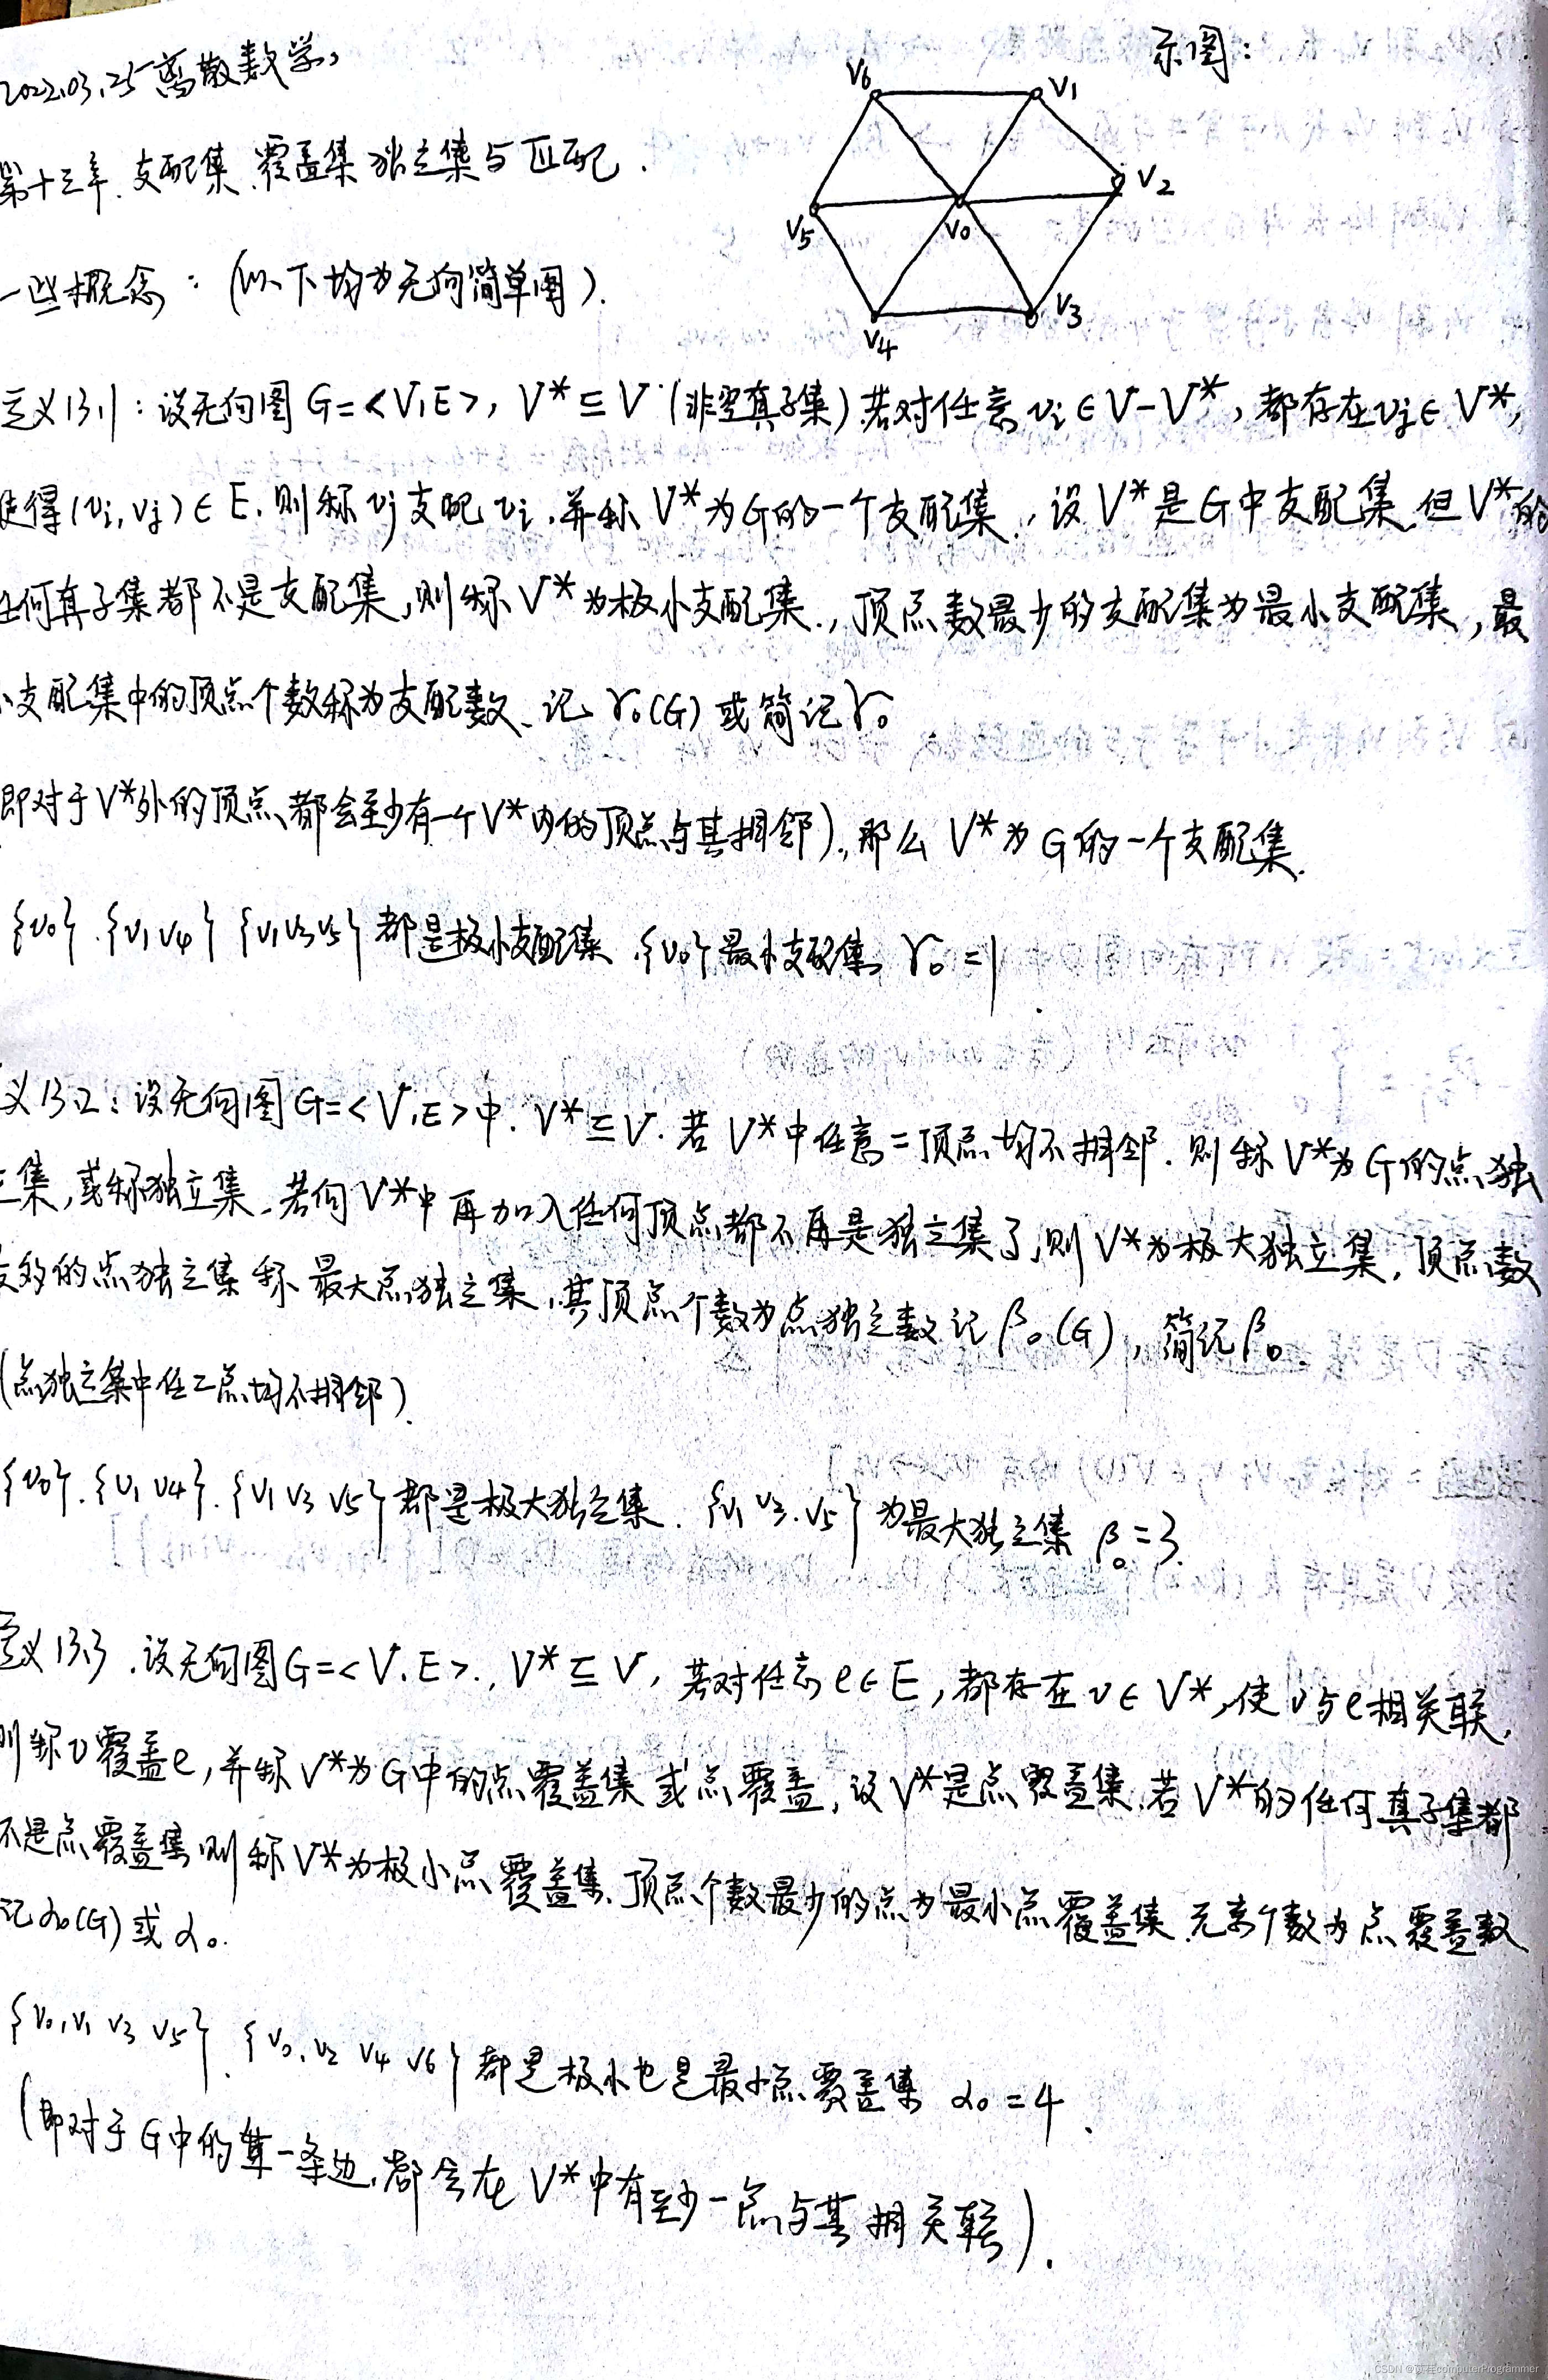 示图:
2022.03.25 离散数学,
第十三章.支配集.覆盖集 独立集与匹配.
V6 V1 V2 V3 V4 V5 V0
一些概念:(以下均为无向简单图).
定义13.1:设无向图 G=<V,E>, V*⊆V (非空真子集) 若对任意 vi∈V-V*, 都存在vj∈V*,
使得(vi,vj)∈E.则称 vj 支配 vi,并称 V*为G的一个支配集.,设 V*是G中支配集.但V*的
任何真子集都不是支配集,则称 V*为极小支配集.,顶点数最少的支配集为最小支配集,最
小支配集中的顶点个数称为支配数、记 γ0(G) 或简记γ0
即对于V*外的顶点、都会至少有一个V*内的顶点与其相邻),那么 V*为 G的一个支配集.
{v0}.{v1 v4} {v1 v3 v5} 都是极小支配集.{v0}最小支配集 γ0=1.
义13.2:设无向图G=<V,E>中. V*⊆V. 若 V*中任意二顶点均不相邻.则称 V*为G的点独
立集,或称独立集.若向V*中再加入任何顶点都不再是独立集了,则V*为极大独立集,顶点数
最多的点独立集称 最大点独立集,其顶点个数为点独立数 记 β0(G),简记β0.
(点独立集中任二点均不相邻).
{v0}.{v1 v4}.{v1 v3 v5} 都是极大独立集.{v1 v3.v5} 为最大独立集 β0=3.
定义13.3.设无向图G=<V.E>., V*⊆V, 若对任意e∈E,都存在v∈V*,使v与e相关联,
则称v覆盖e,并称V*为G中的点覆盖集或点覆盖,设V*是点覆盖集.若V*的任何真子集都
不是点覆盖集则称V*为极小点覆盖集.顶点个数最少的点为最小点覆盖集.元素个数为点覆盖数
记α0(G)或α0.
{v0,v1 v3 v5}.{v0,v2 v4 v6}都是极小也是最小点覆盖集 α0=4.
(即对于G中的每一条边,都会在V*中有至少一点与其相关联).
CSDN @computerProgrammer